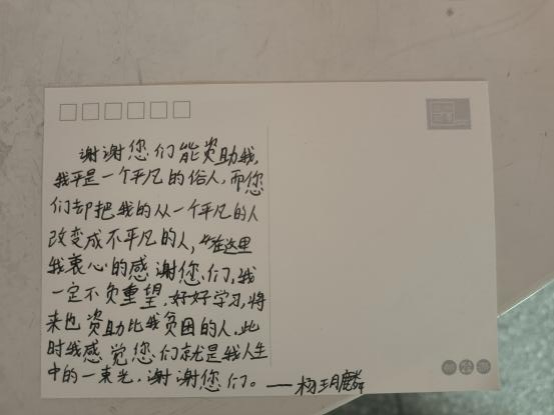 谢谢您们能资助我,
我平是一个平凡的俗人,而您
们却把我的从一个平凡的人
改变成不平凡的人,在这里
我衷心的感谢您们,我
一定不负重望,好好学习,将
来也资助比我贫困的人,此
时我感觉您们就是我人生
中的一束光,谢谢您们。——杨玥麟